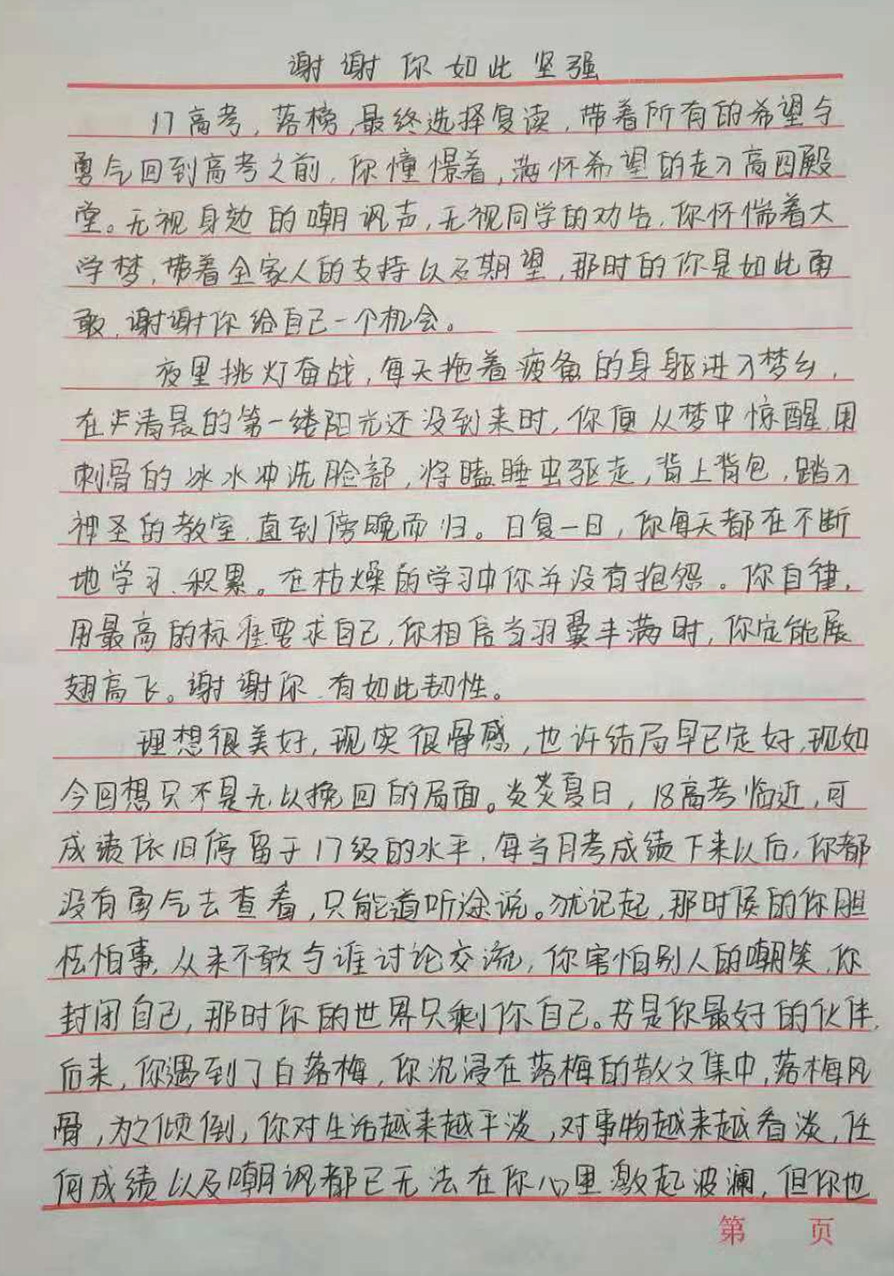 谢谢你如此坚强
17高考,落榜,最终选择复读,带着所有的希望与
勇气回到高考之前,你憧憬着,满怀希望的走入高四殿
堂。无视身边的嘲讽声,无视同学的劝告,你怀惴着大
学梦,带着全家人的支持以及期望,那时的你是如此勇
敢,谢谢你给自己一个机会。
夜里挑灯奋战,每天拖着疲惫的身躯进入梦乡,
在卢清晨的第一缕阳光还没到来时,你便从梦中惊醒,用
刺骨的冰水冲洗脸部,将瞌睡虫驱走,背上背包,踏入
神圣的教室,直到傍晚而归。日复一日,你每天都在不断
地学习、积累。在枯燥的学习中你并没有抱怨。你自律,
用最高的标准要求自己,你相信当羽翼丰满时,你定能展
翅高飞。谢谢你,有如此韧性。
理想很美好,现实很骨感,也许结局早已定好,现如
今回想只不是无以挽回的局面。炎炎夏日,18高考临近,可
成绩依旧停留于17级的水平,每当月考成绩下来以后,你都
没有勇气去查看,只能道听途说。犹记起,那时候的你胆
怯怕事,从来不敢与谁讨论交流,你害怕别人的嘲笑,你
封闭自己,那时你的世界只剩你自己。书是你最好的伙伴,
后来,你遇到了白落梅,你沉浸在落梅的散文集中,落梅风
骨,为之倾倒,你对生活越来越平淡,对事物越来越看淡,任
何成绩以及嘲讽都已无法在你心里激起波澜,但你也
第 页